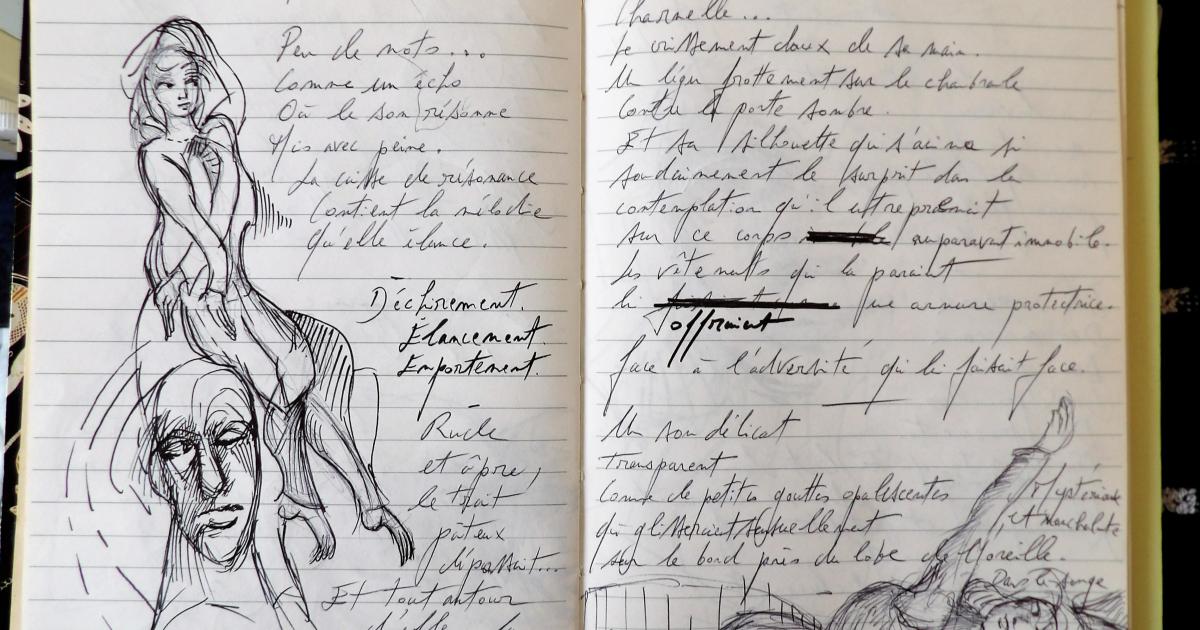 Peu de mots...
Comme un écho
Où le son résonne
Mis avec peine.
La caisse de résonance
Contient la mélodie
Qu'elle élance.
Déchirement.
Élancement.
Emportement.
Rude
et âpre,
le trait
pâteux
dépassait...
Et tout autour
d'elle
Charnelle...
Le crissement doux de sa main.
Un léger frottement sur le chambranle
Contre la porte sombre.
Et sa silhouette qui s'anima si
soudainement le surprit dans la
contemplation qu'il entreprenait
sur ce corps auparavant immobile.
Les vêtements qui la paraient
lui
offraient
une armure protectrice.
face à l'adversité qui lui faisait face.
Un son délicat
transparent
Comme de petites gouttes opalescentes
qui glisseraient sensuellement
sur le bord près du lobe de l'oreille.
Mystérieuse
et nonchalante
Dans le songe